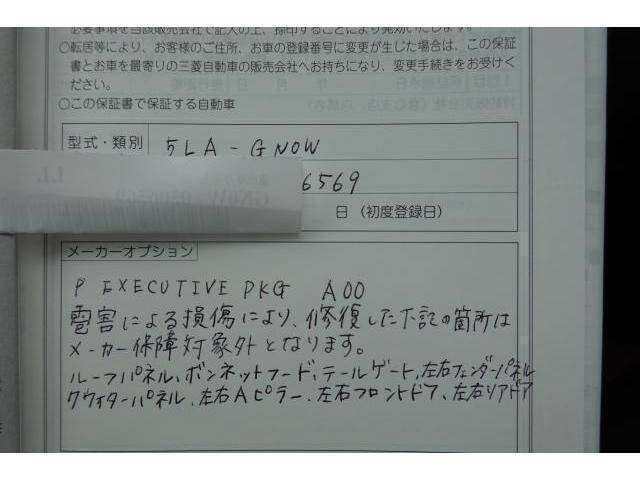 必要事項を当該販売会社で記入の上、捺印することにより発効いたします。
○転居等により、お客様のご住所、お車の登録番号に変更が生じた場合は、この保証
書とお車を最寄りの三菱自動車の販売会社へお持ちになり、変更手続きをお受けく
ださい。
○この保証書で保証する自動車
型式・類別 5LA-GN0W
6569
日（初度登録日）
メーカーオプション
P EXECUTIVE PKG A00
雹害による損傷により、修復した下記の箇所は
メーカー保障対象外となります。
ルーフパネル、ボンネットフード、テールゲート、左右フェンダーパネル
クウォターパネル、左右Aピラー、左右フロントドア、左右リアドア